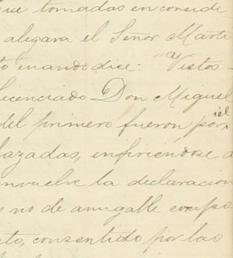 ue tomadas en conside
alegara el Señor Marti
to cuando dice: "Vistos
licenciado Don Miguel
del primero fueron por
él
lazadas, infiriendose d
envuelve la declaracion
s no de amigable compo
to, consentido por las